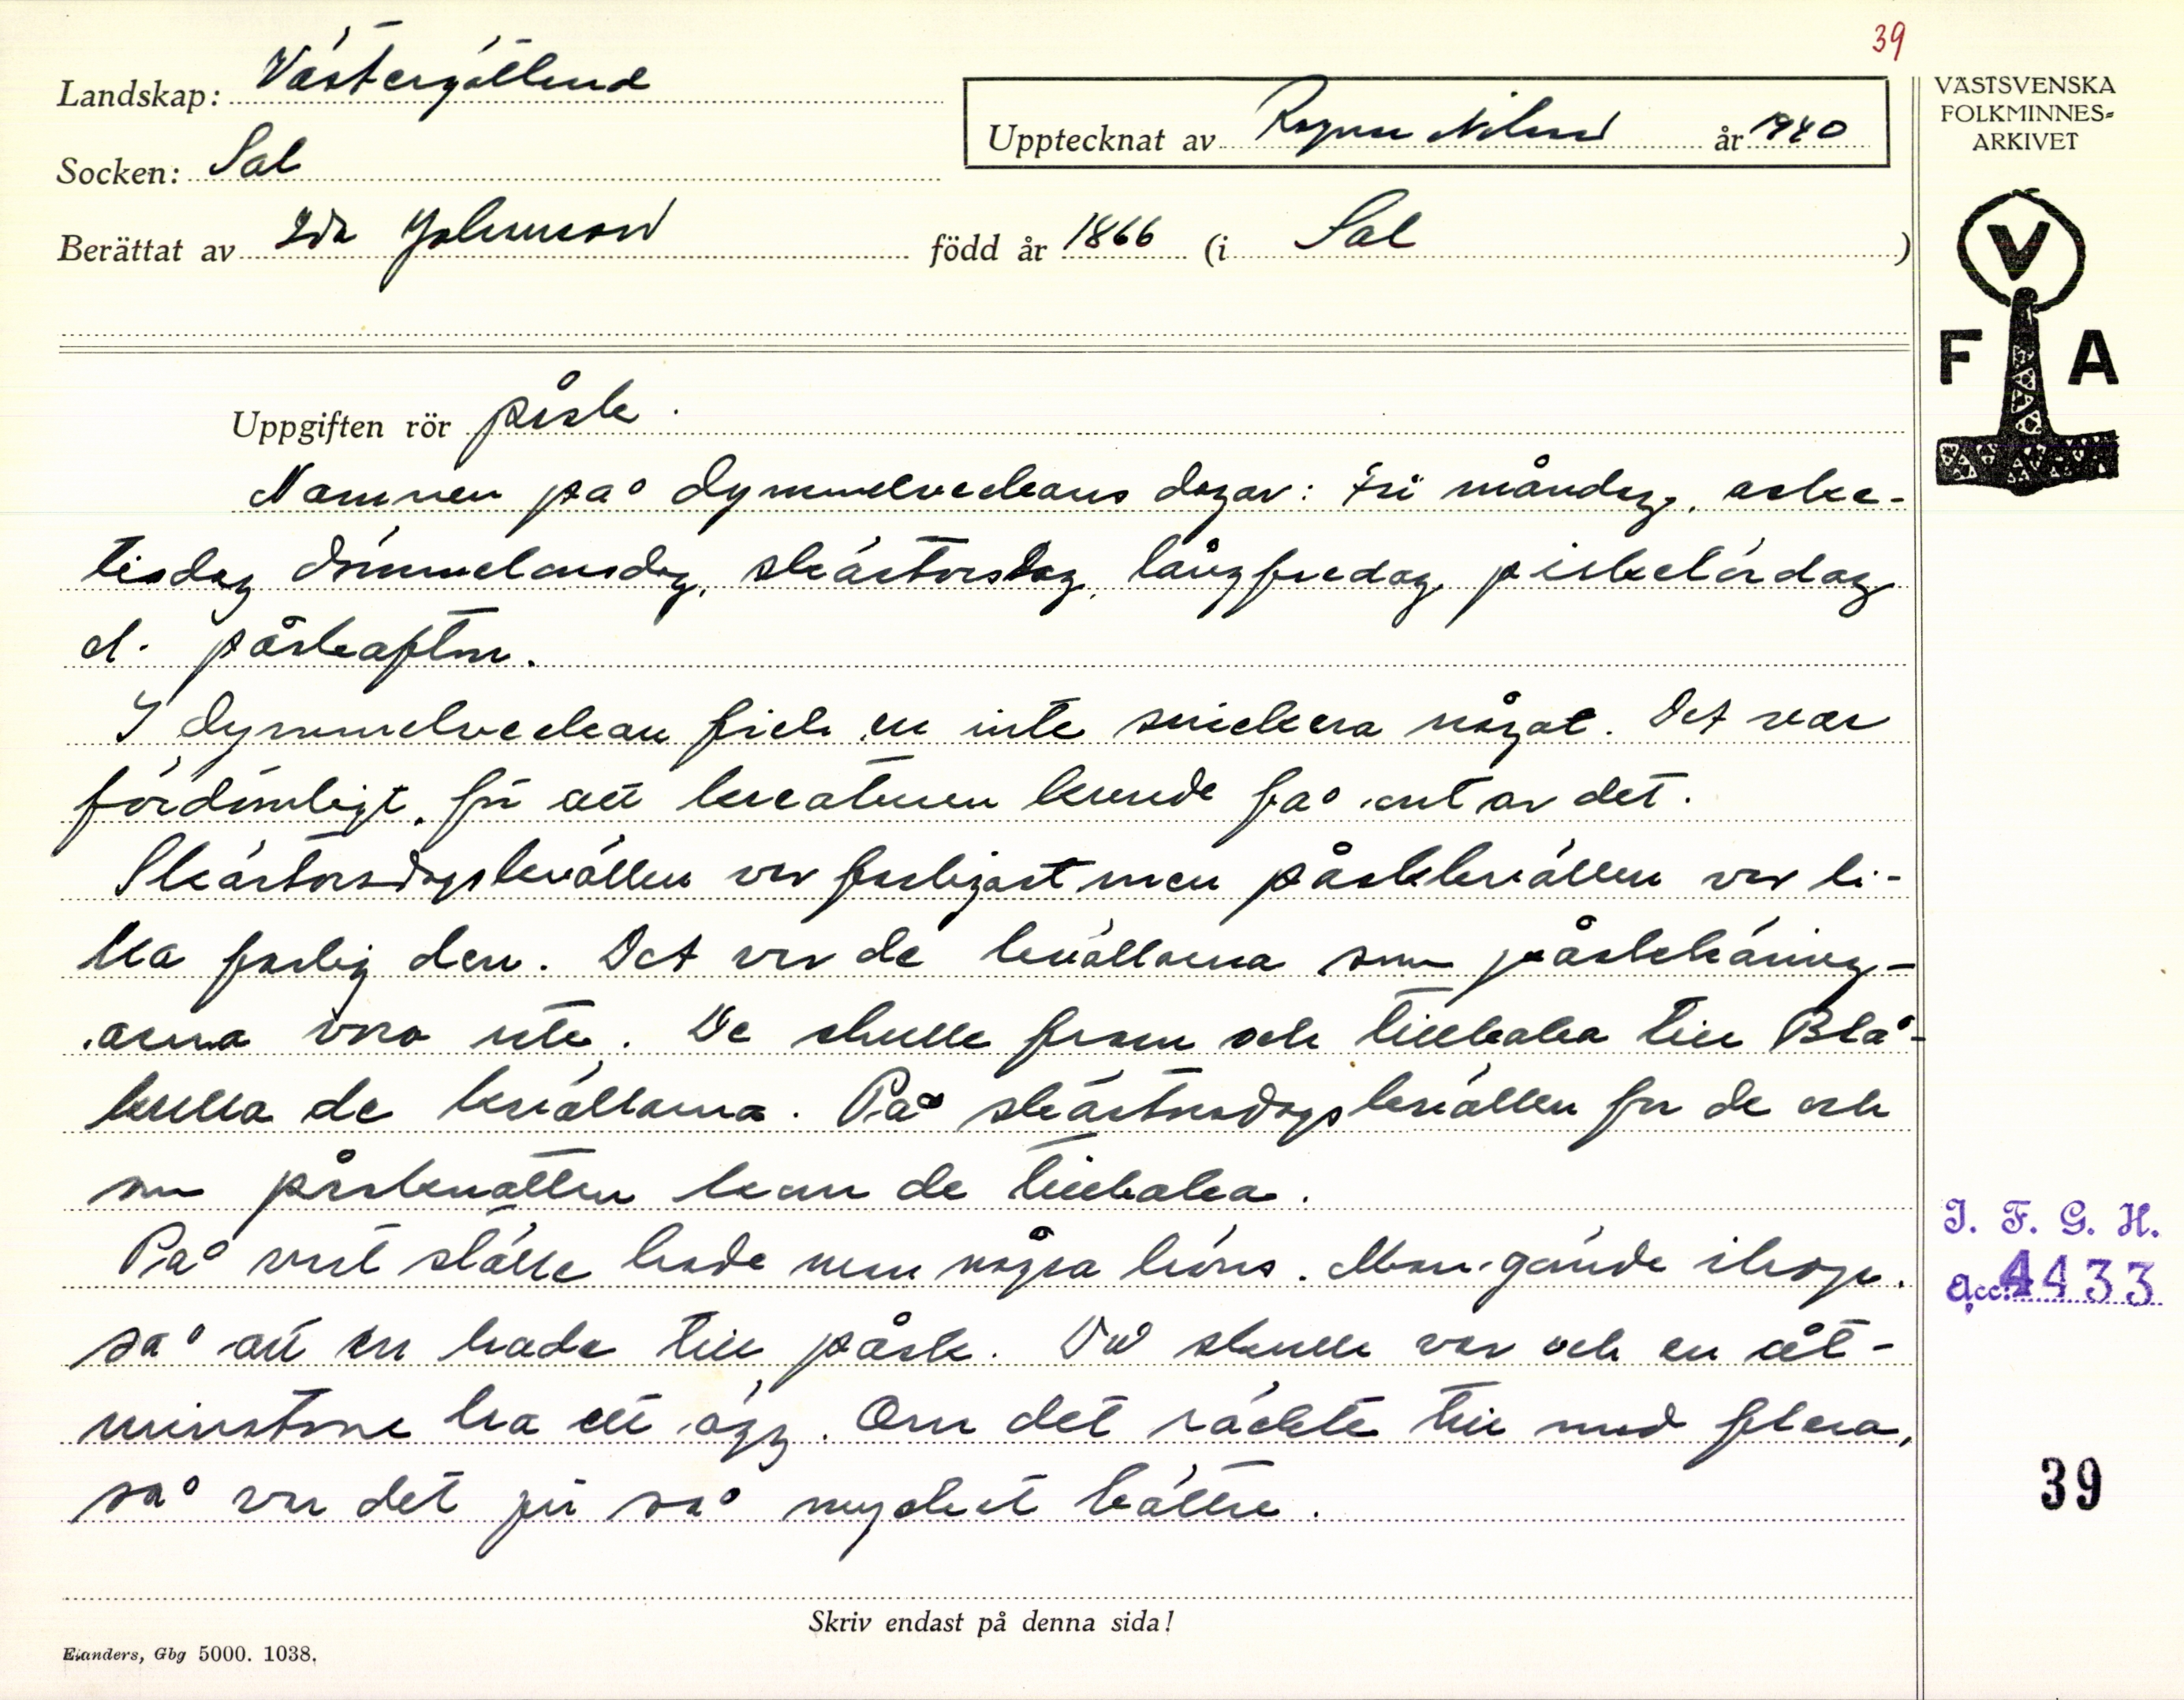 39
Landskap: Västergötland
Upptecknat av Ragnar Nilsson år 1940
Socken: Sal
Berättat av Ida Johansson född år 1866 (i Sal )
VÄSTSVENSKA
FOLKMINNES-
ARKIVET
V
F A
Uppgiften rör påsk.
Namnen på dymmelveckans dagar: Fri måndag, aske-
tisdag dömmelonsdag, skärtorsdag, långfredag, påskelördag
el. påskafton.
I dymmelveckan fick en inte snickera något. Det var
fördömligt, för att kreaturen kunde få ont av det.
Skärtorsdagskvällen var farligast men påskkvällen var li-
ka farlig den. Det var de kvällarna som påskkäring-
arna voro ute. De skulle fram och tillbaka till Blå-
kulla de kvällarna. På skärtorsdagskvällen for de och
om påsknatten kom de tillbaka.
På vart ställe hade man några höns. Man gände ihop,
så att en hade till påsk. Då skulle var och en åt-
minstone ha ett ägg. Om det räckte till med flera,
så var det ju så mycket bättre.
I. F. G. H.
acc. 4433
39
Skriv endast på denna sida!
Elanders, Gbg 5000. 1038.